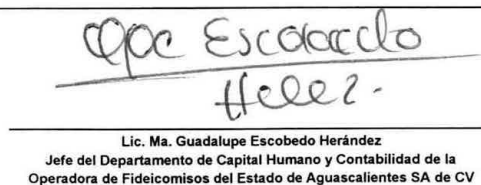 Escobedo
Lic. Ma. Guadalupe Escobedo Herández
Jefe del Departamento de Capital Humano y Contabilidad de la
Operadora de Fideicomisos del Estado de Aguascalientes SA de CV